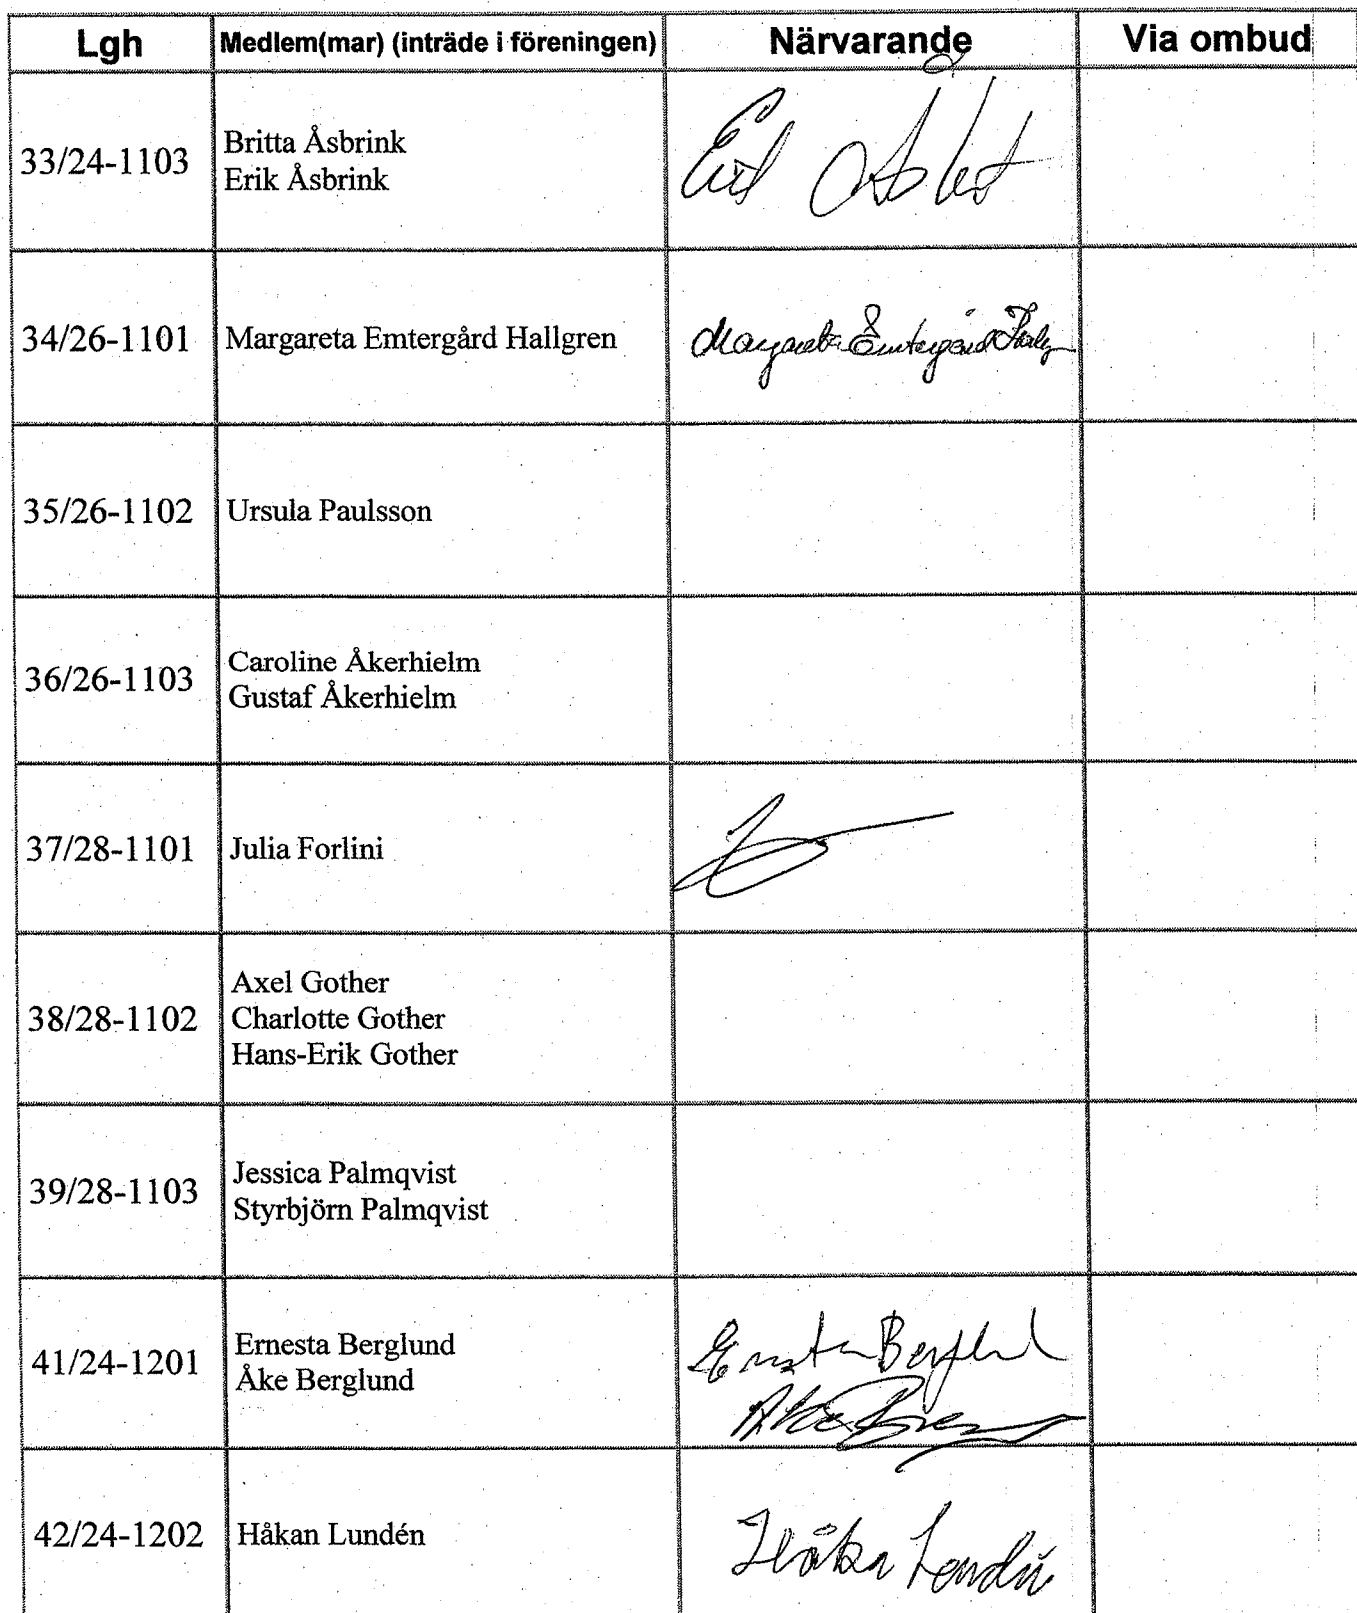 Lgh Medlem(mar) (inträde i föreningen) Närvarande Via ombud
33/24-1103 Britta Åsbrink
Erik Åsbrink
34/26-1101 Margareta Emtergård Hallgren Margareta Emtergård
35/26-1102 Ursula Paulsson
36/26-1103 Caroline Åkerhielm
Gustaf Åkerhielm
37/28-1101 Julia Forlini
38/28-1102 Axel Gother
Charlotte Gother
Hans-Erik Gother
39/28-1103 Jessica Palmqvist
Styrbjörn Palmqvist
41/24-1201 Ernesta Berglund Ernesta Berglund
Åke Berglund Åke
42/24-1202 Håkan Lundén Håkan Lundén